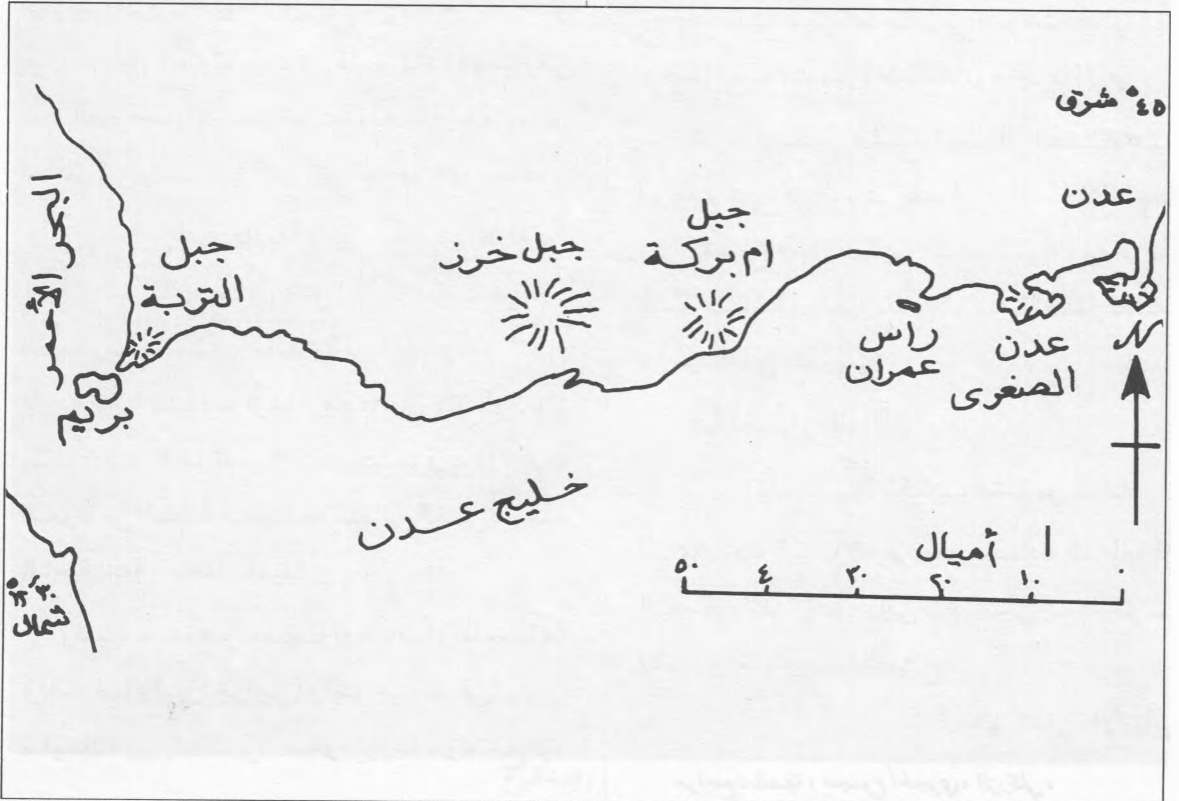 ٤٥° شرق
عدن
جبل
ام بركة
جبل خرز
جبل
التربة
البحر الأحمر
بريم
راس
عمران
عدن
الصغرى
N
خليج عدن
أميال
٥٠ ٤ ٣٠ ٢٠ ١٠ ٠
١٢° ٣٠′
شمال